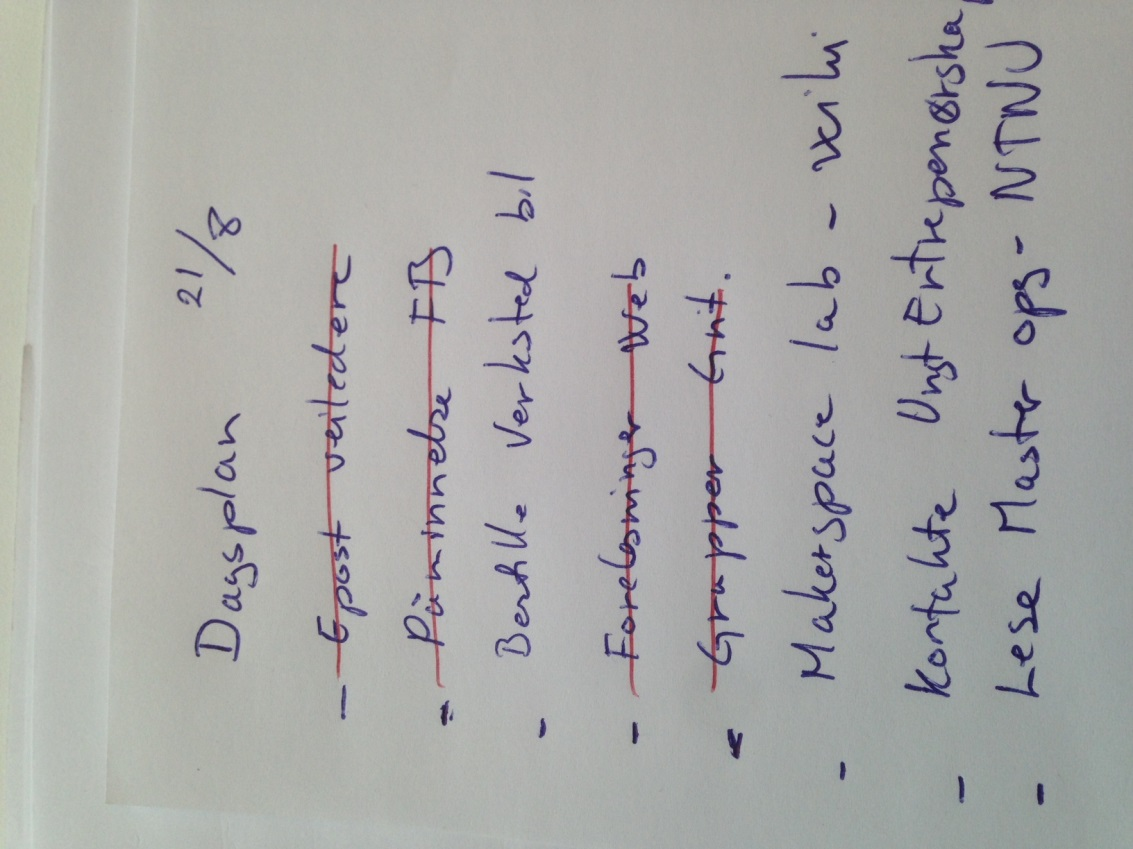 Dagsplan 21/8
- Epost veiledere
- Påminnelse FB
- Bestille Verksted bil
- Forelesninger Web
- Grupper Gnit.
- Makerspace lab -
- Kontakte Ungt Entrepenørskap
- Lese Master opg - NTNU